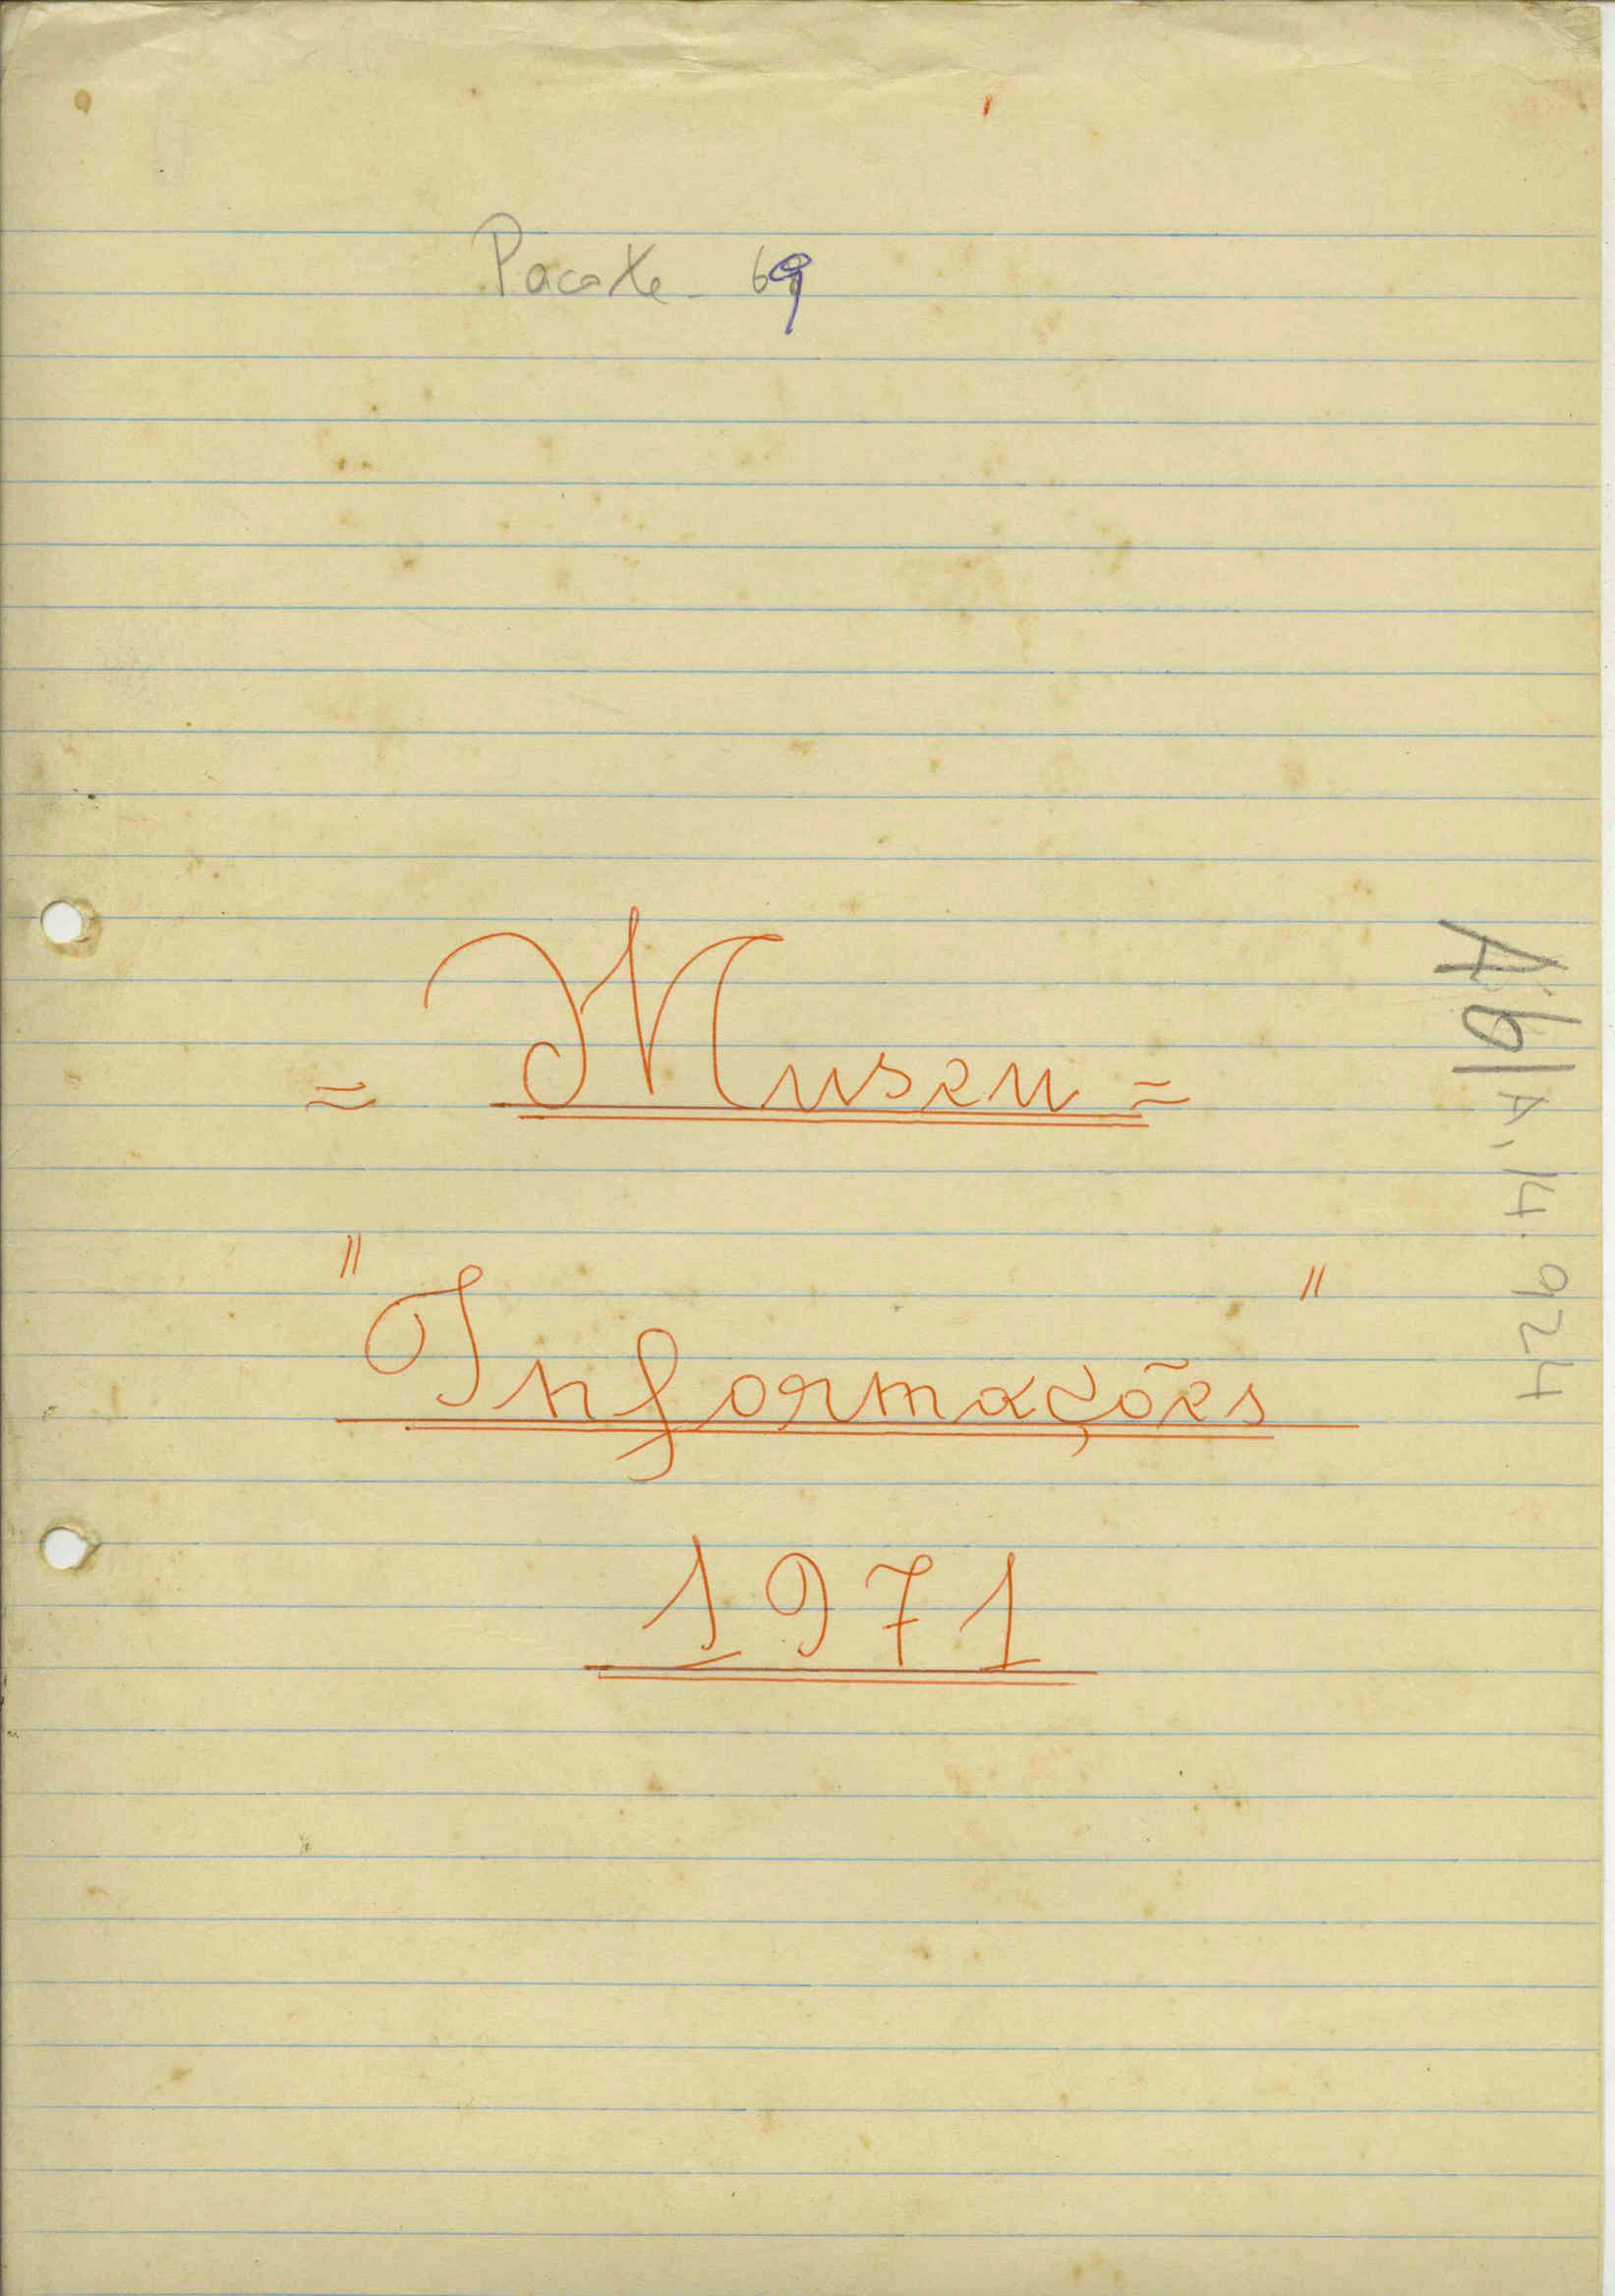 Pacote - 69
= Museu =
"Informações"
1971
A6|A, 14.924